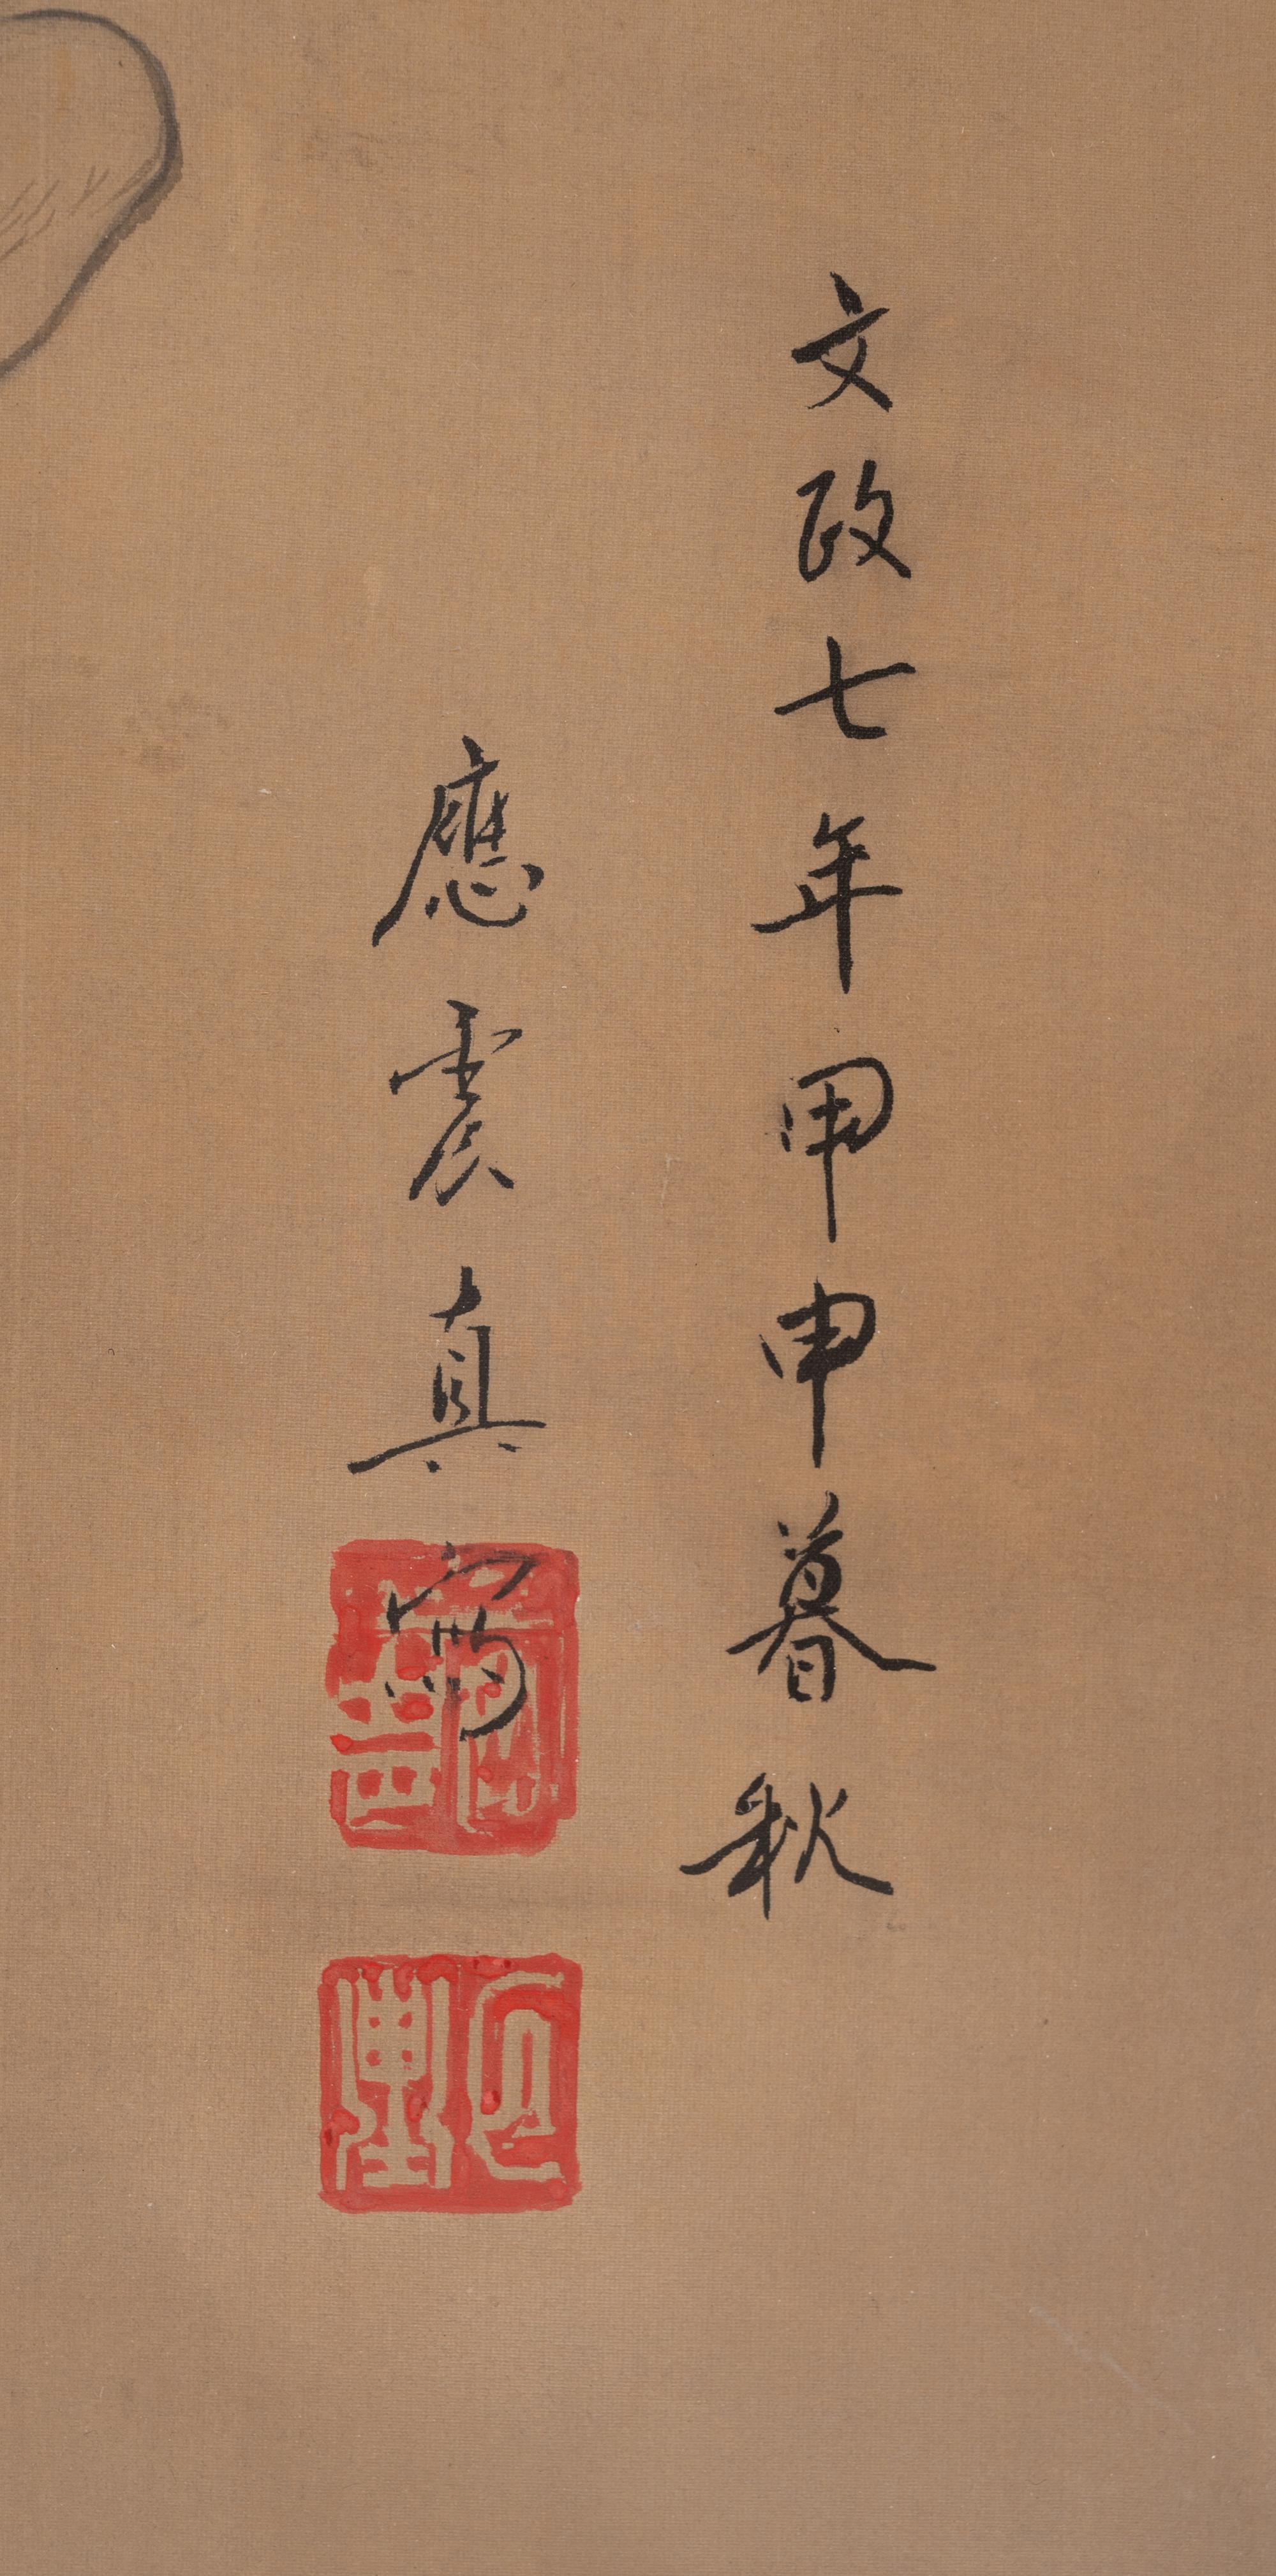 文政七年甲申暮秋
應震真寫